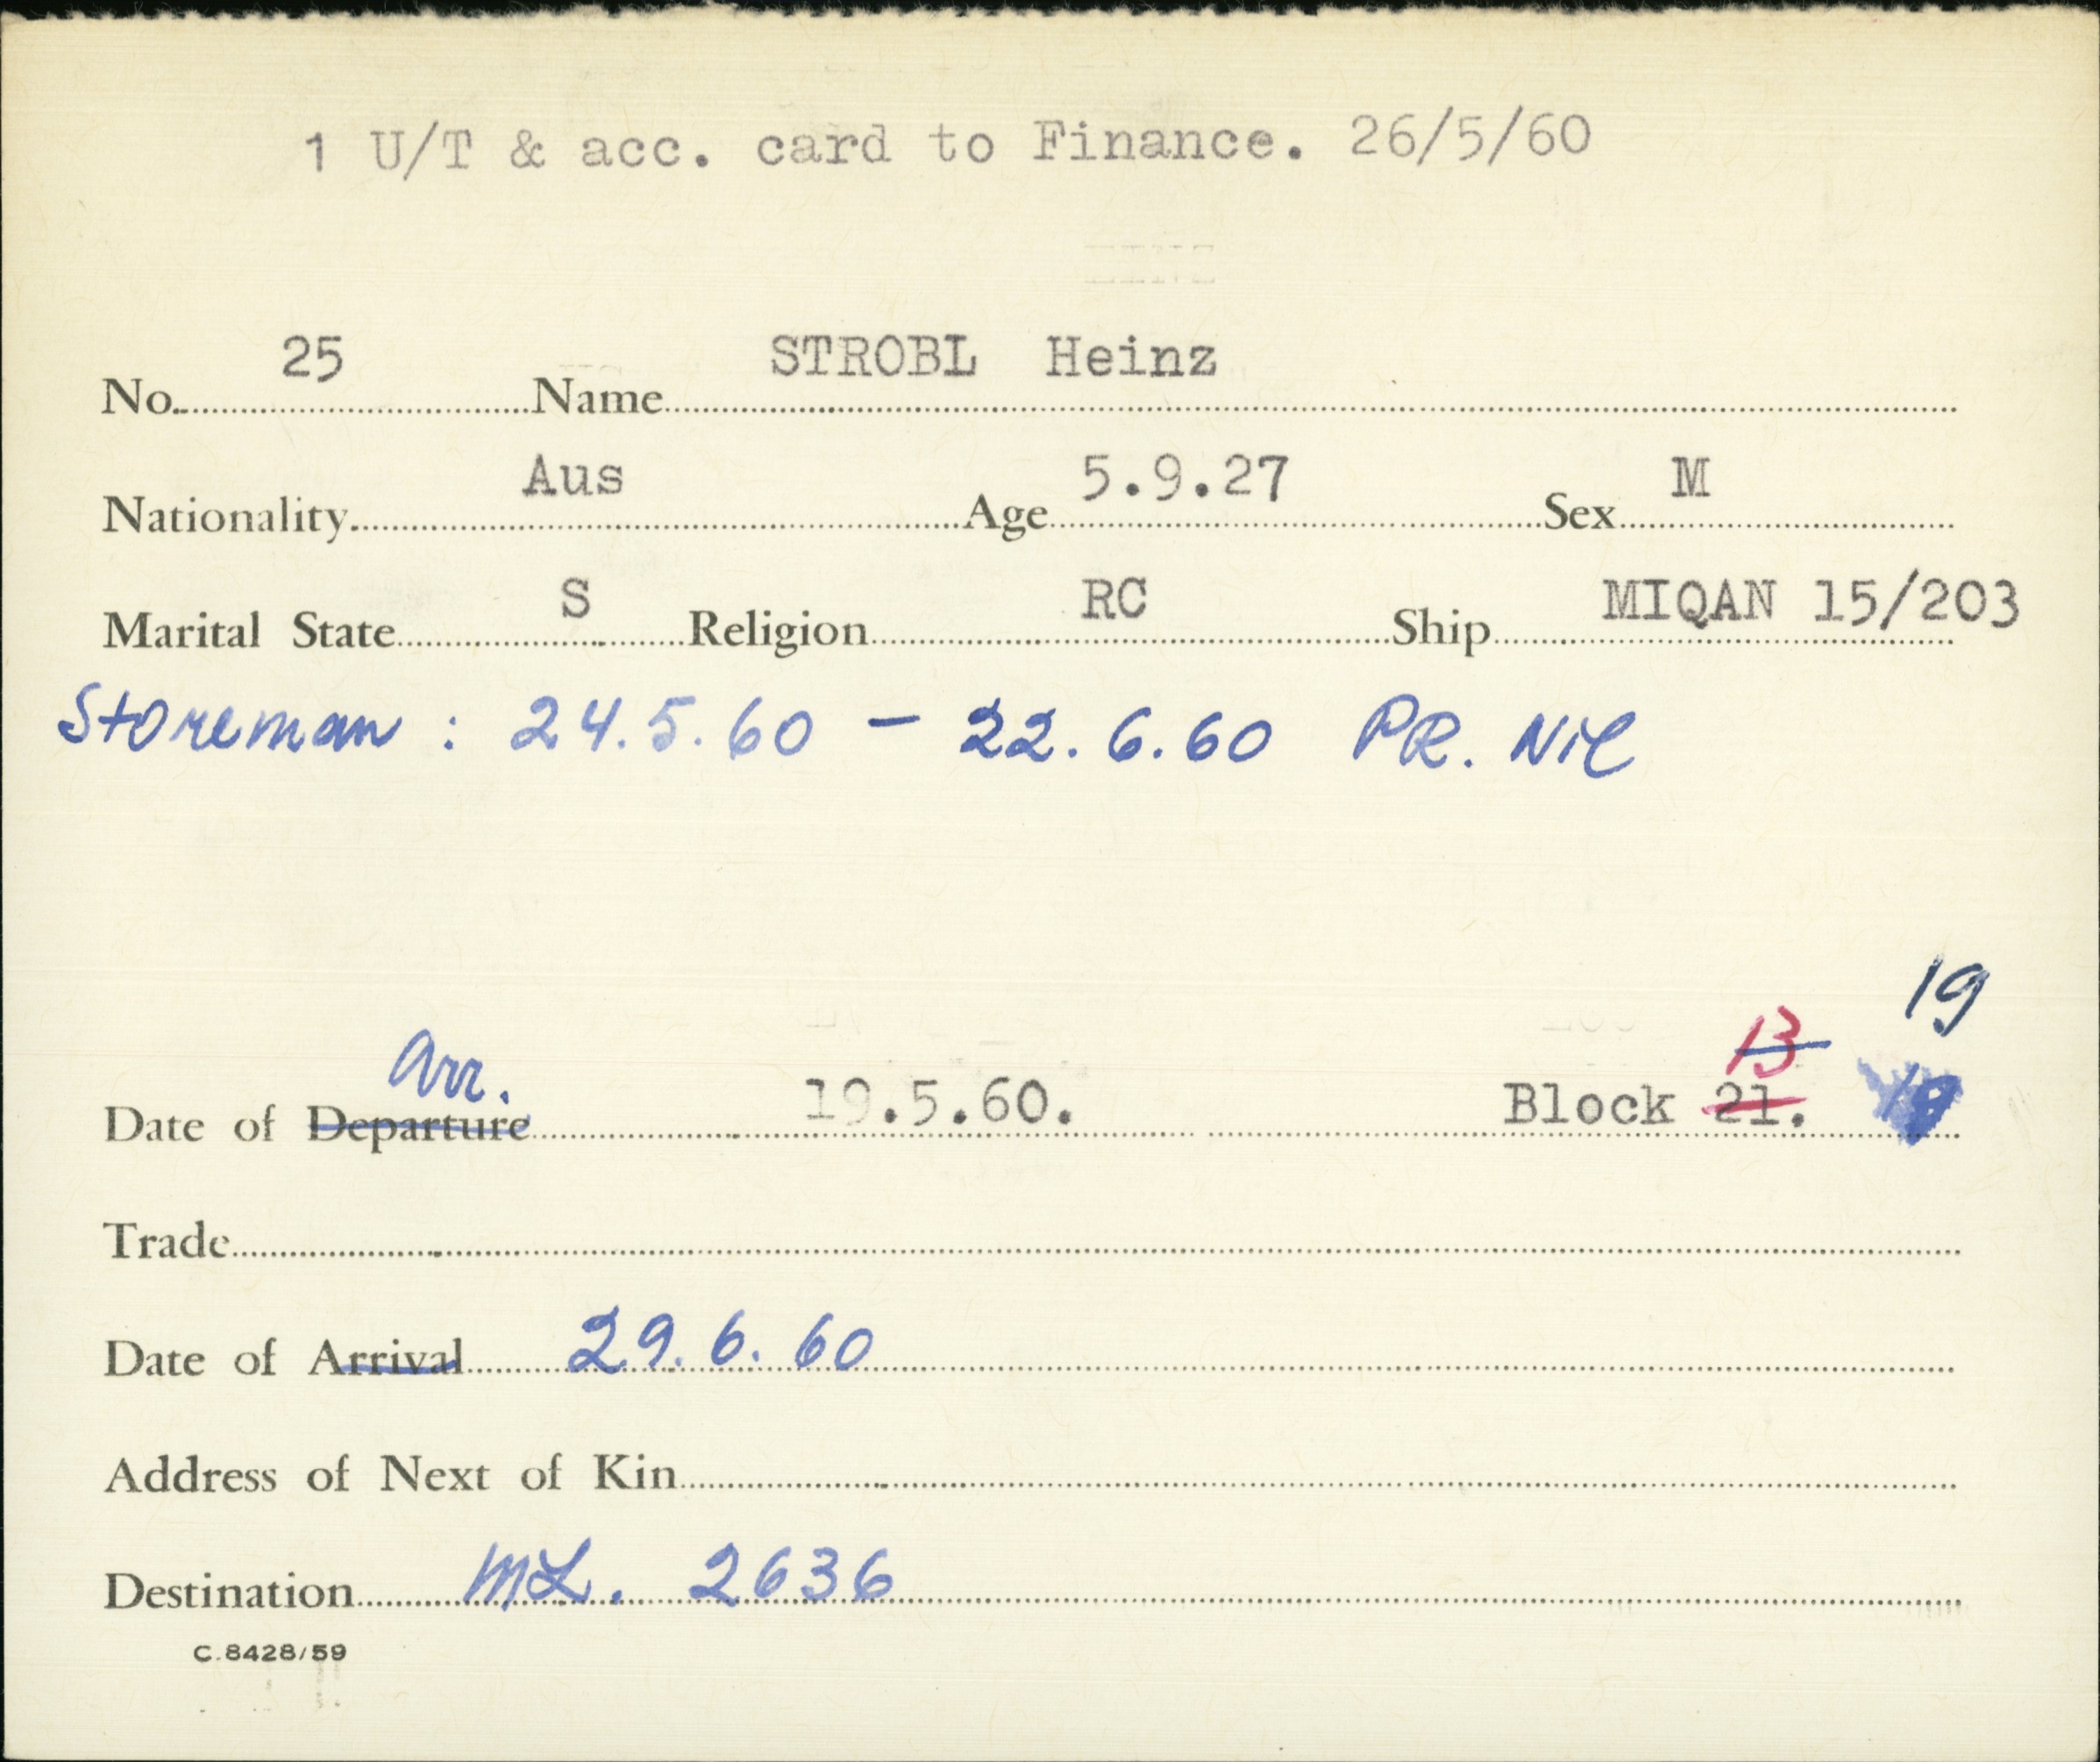 1 U/T & acc. card to Finance. 26/5/60
No. 25 Name STROBL Heinz
Nationality Aus Age 5.9.27 Sex M
Marital State S Religion RC Ship MIQAN 15/203
Storeman : 24.5.60 – 22.6.60 PR. Nil
19
Arr. 13
Date of Departure 19.5.60. Block 21.
Trade
Date of Arrival 29.6.60
Address of Next of Kin
Destination ML. 2636
C.8428/59